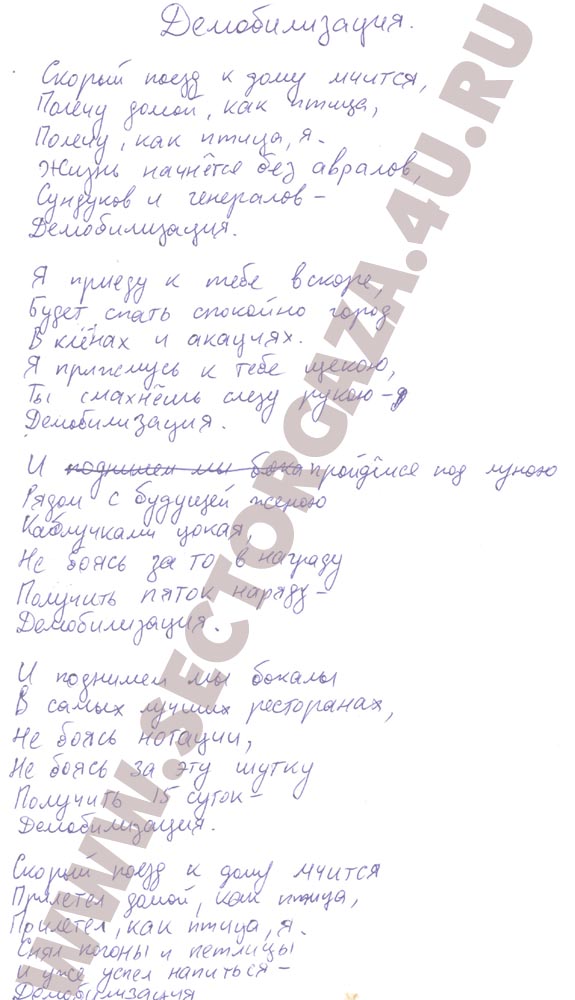 Демобилизация.
Скорый поезд к дому мчится,
Полечу домой, как птица,
Полечу, как птица, я.
Жизнь начнётся без авралов,
Сундуков и генералов –
Демобилизация.
Я приеду к тебе вскоре,
Будет спать спокойно город
В клёнах и акациях.
Я прижмусь к тебе щекою,
Ты смахнёшь слезу рукою –
Демобилизация.
И поднимем мы бока пройдёмся под луною
Рядом с будущей женою
Каблучками цокая,
Не боясь за то в награду
Получить пяток наряду –
Демобилизация.
И поднимем мы бокалы
В самых лучших ресторанах,
Не боясь нотации,
Не боясь за эту шутку
Получить 15 суток –
Демобилизация.
Скорый поезд к дому мчится
Прилетел домой, как птица,
Прилетел, как птица, я.
Снял погоны и петлицы
И уже успел напиться –
Демобилизация
WWW.SECTORGAZA.4U.RU